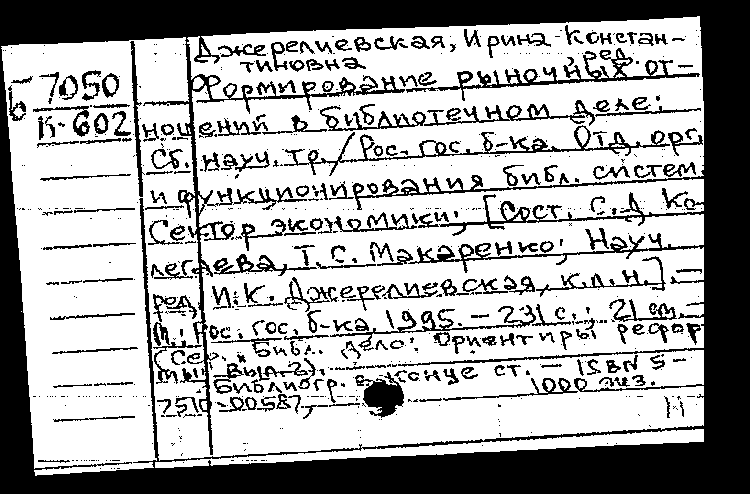 Джерелиевская, Ирина Констан-
тиновна, ред.
Б 7050
К-602
Формирование рыночных от-
ношений в библиотечном деле:
Сб. науч. тр. / Рос. гос. б-ка. Отд. орг.
и функционирования библ. систем.
Сектор экономики; [Сост. С. Д. Ко-
легаева, Т. С. Макаренко; Науч.
ред. И. К. Джерелиевская, к.п.н.]. —
М.: Рос. гос. б-ка, 1995. — 231 с.; 21 см. —
(Сер. "Библ. дело: Ориентиры рефор
мы". Вып. 2).
Библиогр. в конце ст. — ISBN 5-
7510-00587,
1000 экз.